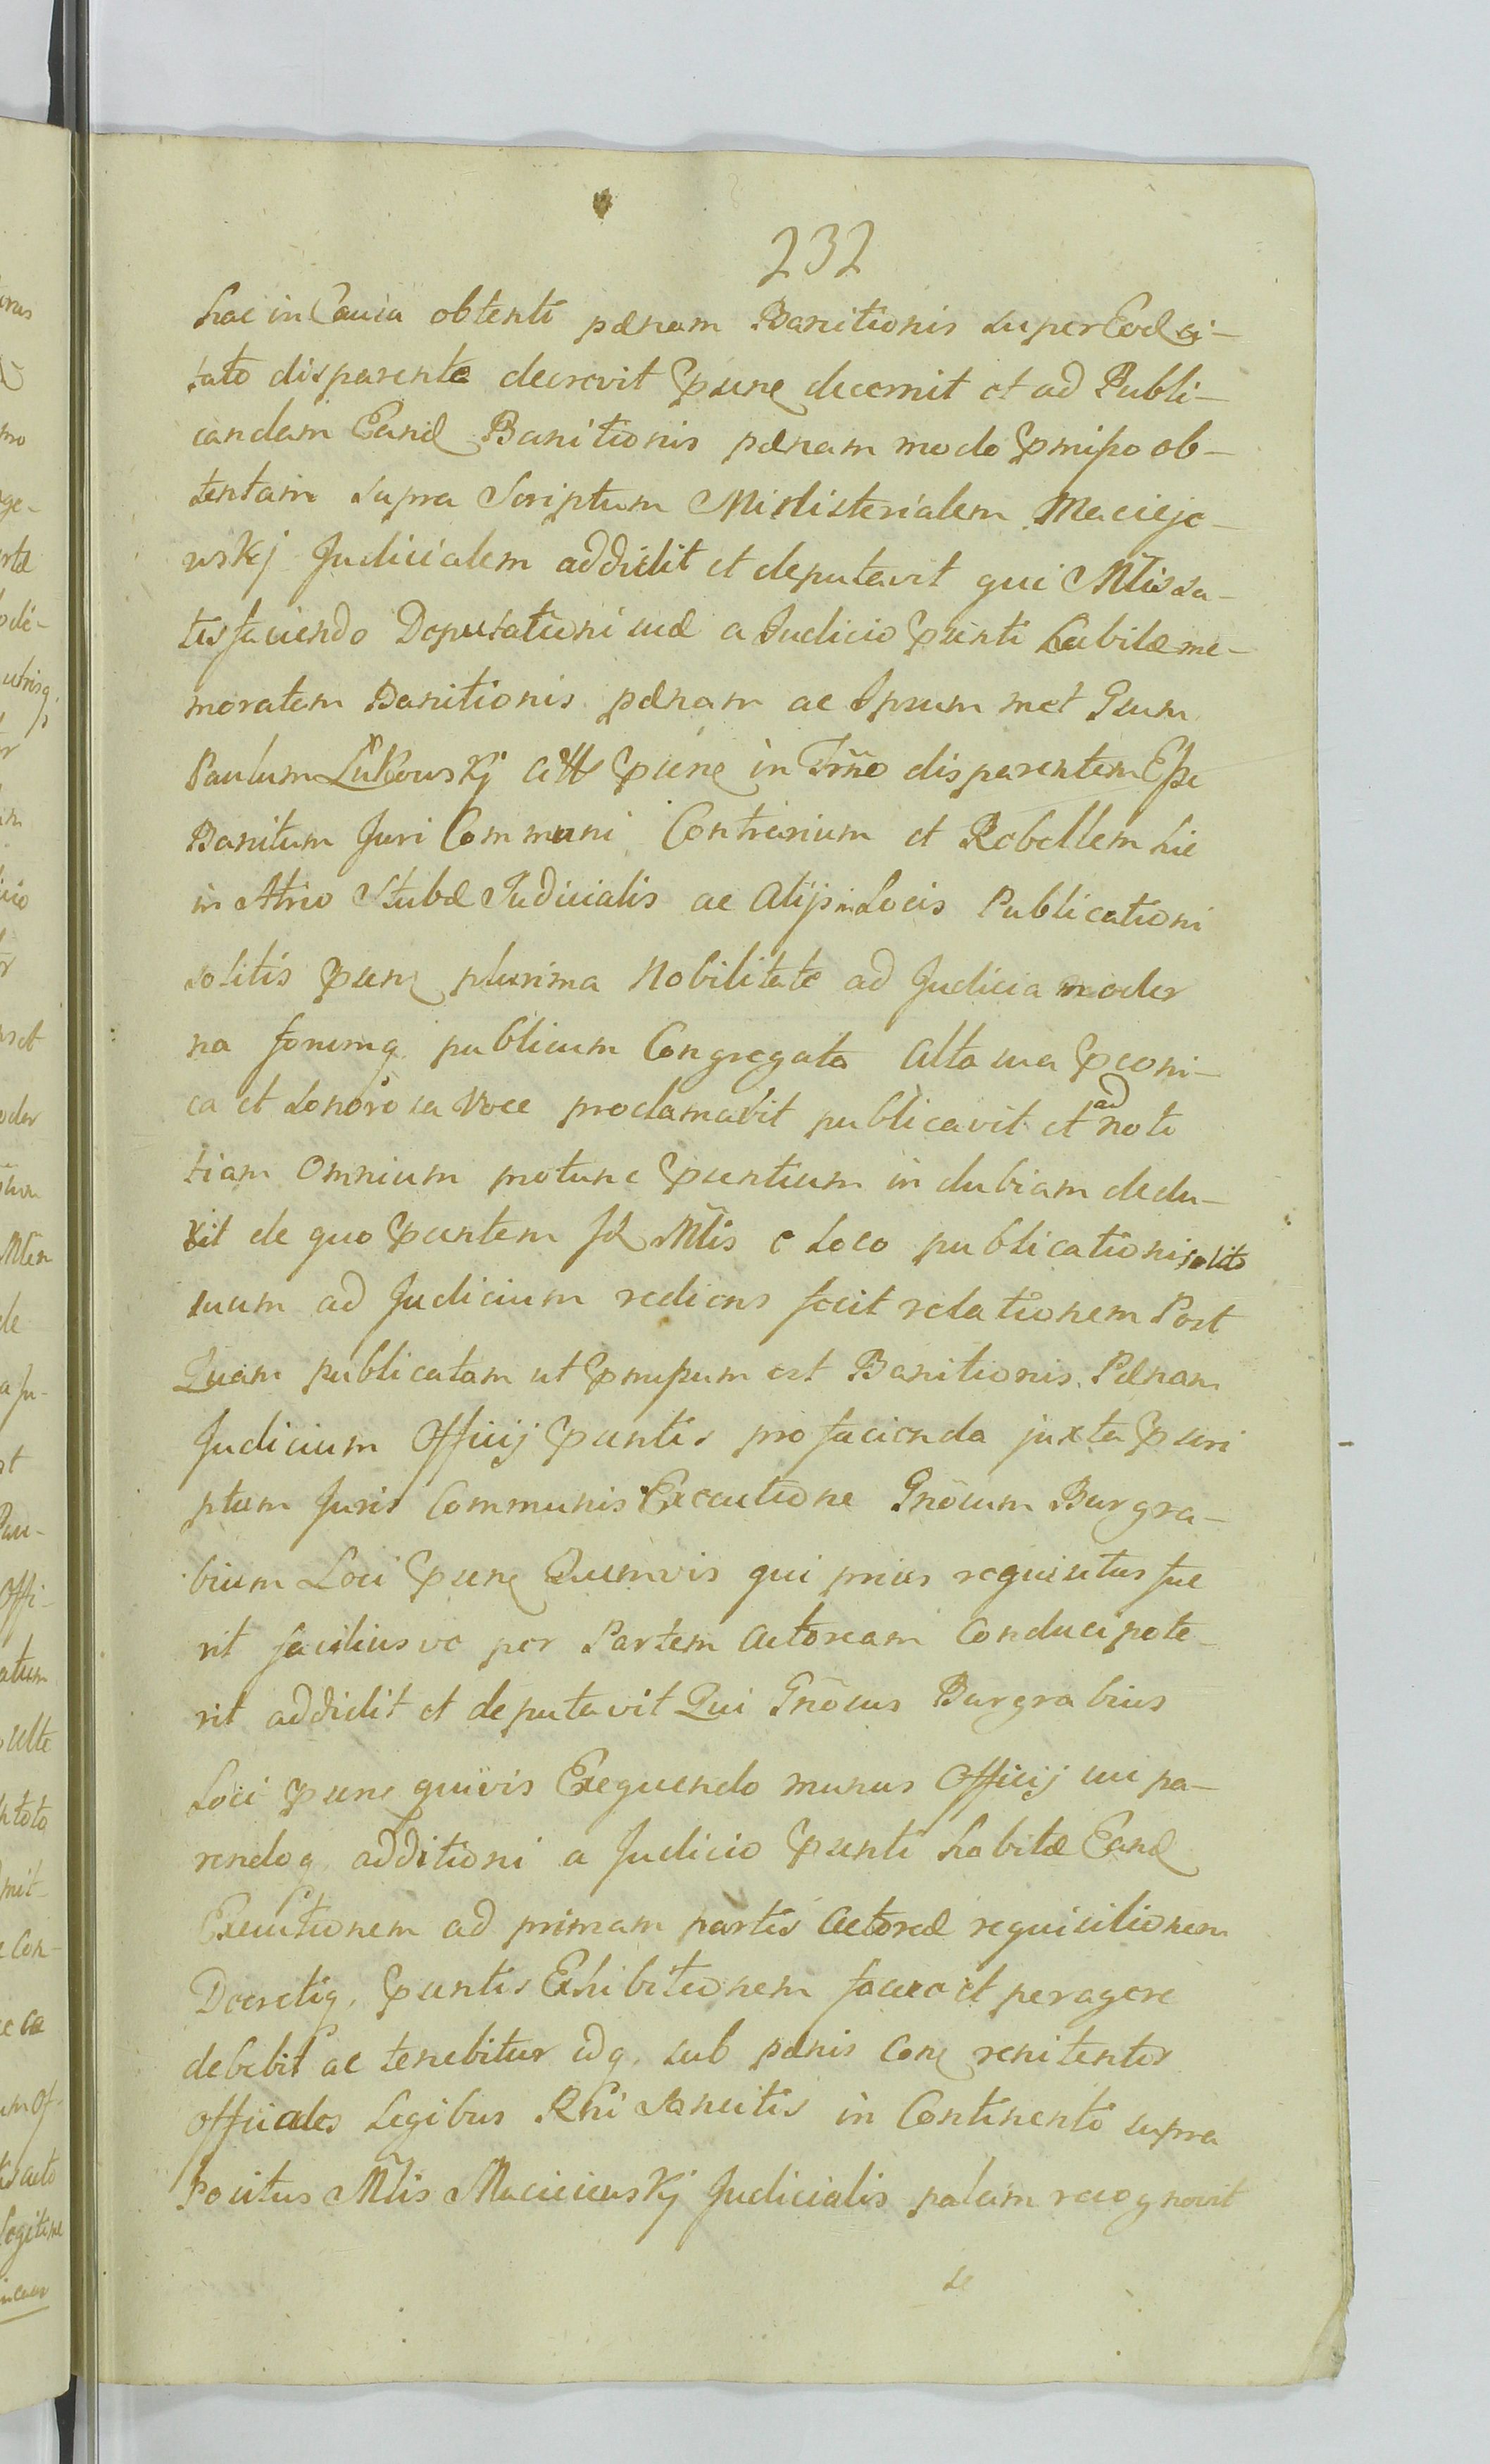 232
hac in Causa obtenti pænam Banitionis super Eod ci-
tato disparente decrevit Præne decernit et ad Publi-
candam Eand Banitionis pænam modo præmisso ob-
tentam supra Scriptum Ministerialem Maciejo-
wskj Judicialem addidit et deputavit qui Mtis sa-
tisfaciendo Deputationi suæ a Judicio præsenti habitæ me-
moratam Banitionis pænam ac Ipsum met Gsum
Paulum Lukowskj citt præsene in Trño disparentem Esse
Banitum Juri Communi Contrarium et Rebellem hic
in Atrio Stubæ Judicialis ac Alijs in Locis Publicationi
solitis præsene plurima Nobilitate ad Judicia moder
na forumq publicum Congregata Alta sua præconi-
ca et sonorosa Voce proclamavit publicavit et ad noti
tiam Omnium protunc præsentium indubiam dedu-
xit de quo præsentem Id Mtis e Loco publicationi solito
suum ad Judicium rediens fecit relationem Post
Quam publicatam ut præmissum est Banitionis Pænam
Judicium Officij præsentis pro facienda juxta præscri
ptum Juris Communis Executione Gnõsum Burgra-
bium Loci præsene Quemvis qui prius requisitus fue
rit faciliusve per Partem Actoream Conduci pote-
rit addidit et deputavit Qui Gnõsus Burgrabius
Loci præsene quivis Exequendo munus Officij sui pa-
rendoq additioni a Judicio præsenti habitæ Eand
Executionem ad primam partis Actoreæ requisitionem
Decretiq præsentis Exhibitionem facere et peragere
debebit ac tenebitur idq sub pænis cone renitentes
officiales Legibus Rni Sancitis in Continenti supra
Positus Mtis Macieiewskj Judicialis palam recognovit
se